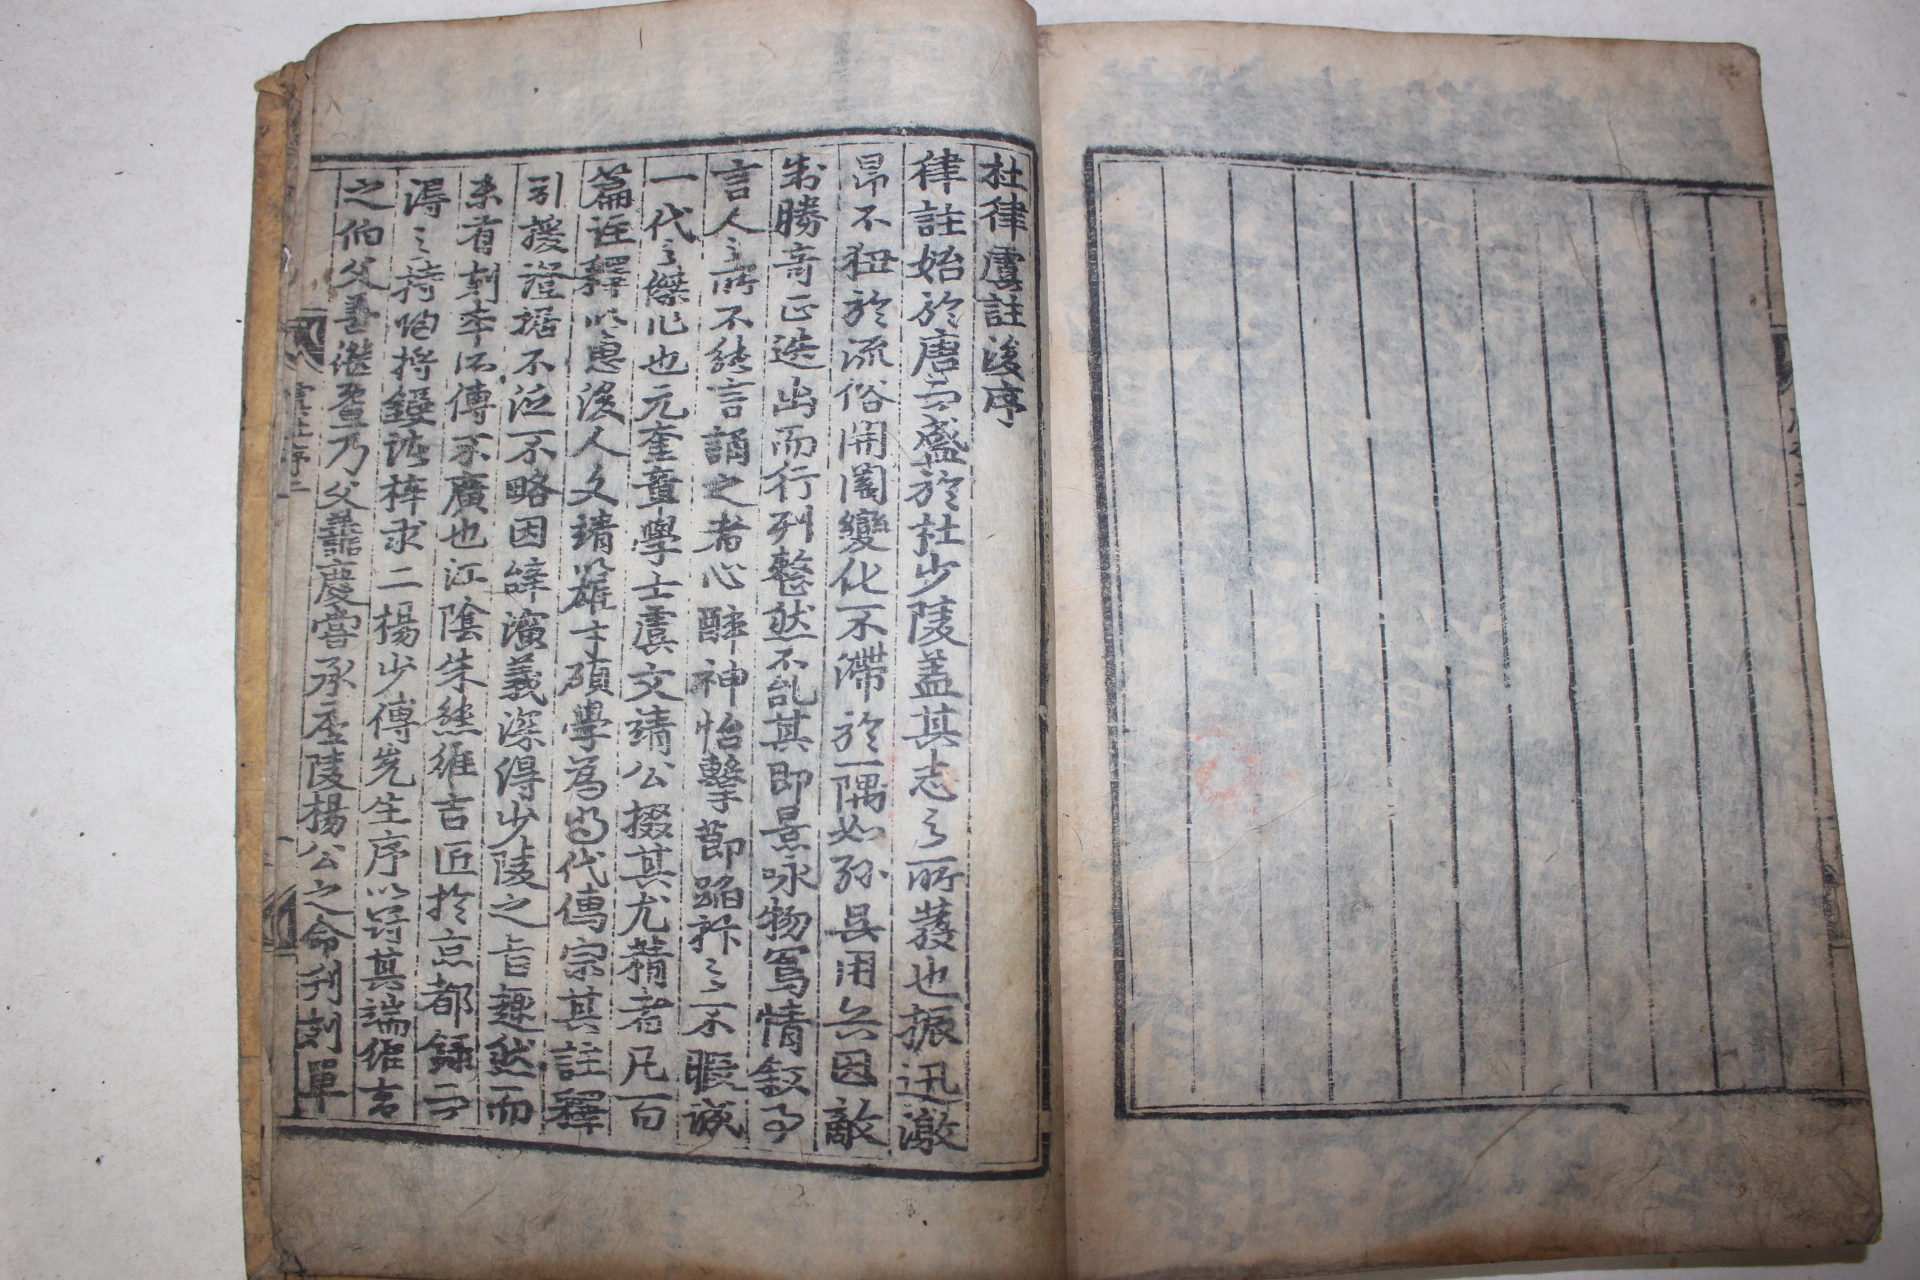 杜律虞註後序
律註始於唐而盛於杜少陵盖其志之所發也振迅激
昂不狃於流俗開闔變化不滯於一隅如孫吳用兵因敵
制勝奇正迭出而行列整然不乱其即景咏物寫情叙事
言人之所不能言誦之者心醉神怡擊節蹈抃之不暇誠
一代之傑作也元奎章學士虞文靖公掇其尤精者凡百
篇註釋以惠後人文靖以雄才碩學為當代儒宗其註釋
引援證据不泛不略因辝演義深得少陵之旨趣然而
未有刻本所傳不廣也江陰朱熊維吉匠於京都錄而
淂之持歸将鋟諸梓求二楊少傅先生序以冠其端維吉
之伯父善继曁乃父善慶嘗承廬陵楊公之命刊刻單
虞註序二